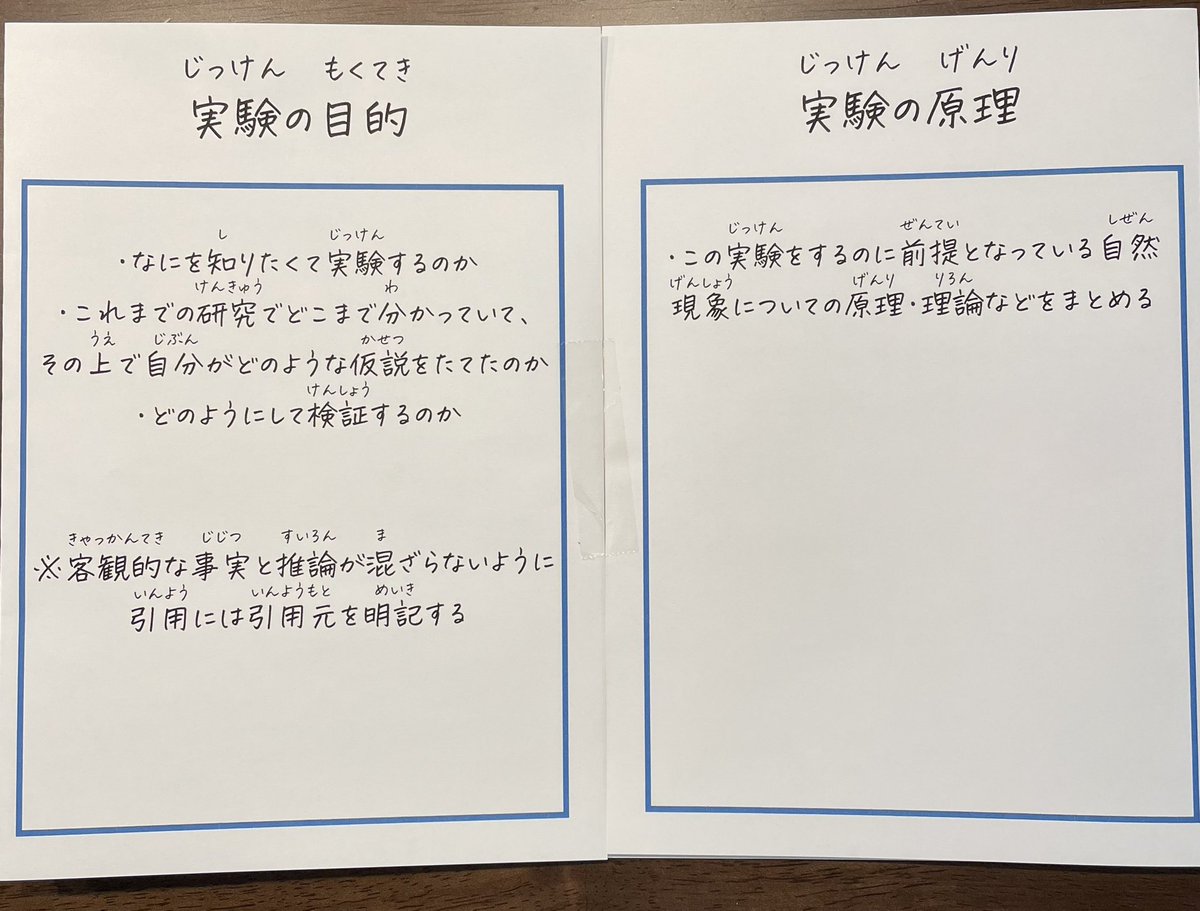 じっけん もくてき
実験の目的
し じっけん
・なにを知りたくて実験するのか
けんきゅう わ
・これまでの研究でどこまで分かっていて、
うえ じぶん かせつ
その上で自分がどのような仮説をたてたのか
けんしょう
・どのようにして検証するのか
きゃっかんてき じじつ すいろん ま
※客観的な事実と推論が混ざらないように
いんよう いんようもと めいき
引用には引用元を明記する
じっけん げんり
実験の原理
じっけん ぜんてい しぜん
・この実験をするのに前提となっている自然
げんしょう げんり りろん
現象についての原理・理論などをまとめる